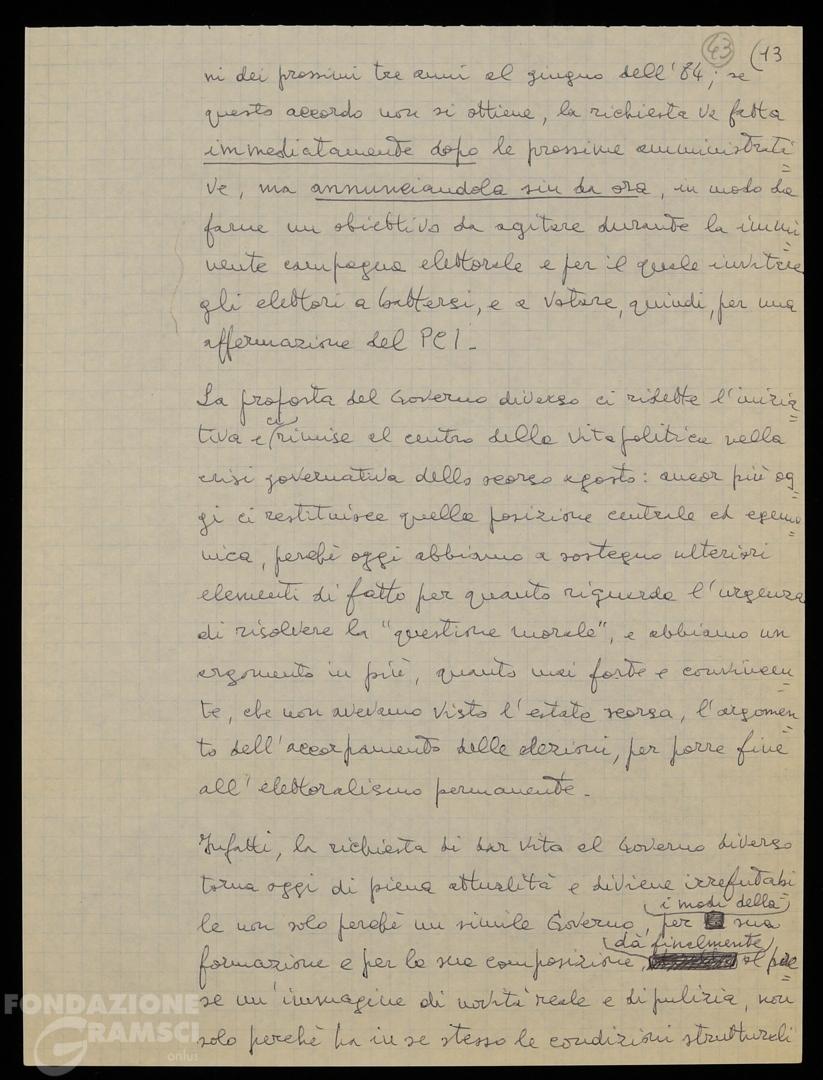 43 (13
ni dei prossimi tre anni al giugno dell'84; se
questo accordo non si ottiene, la richiesta va fatta
immediatamente dopo le prossime amministrati=
ve, ma annunciandola sin da ora, in modo da
farne un obiettivo da agitare durante la immi=
nente campagna elettorale e per il quale invitare
gli elettori a battersi, e a votare, quindi, per una
affermazione del PCI.
La proposta del Governo diverso ci ridette l'inizia=
tiva e ci rimise al centro della vita politica nella
crisi governativa dello scorso agosto: ancor più og=
gi ci restituisce quella posizione centrale ed egemo=
nica, perché oggi abbiamo a sostegno ulteriori
elementi di fatto per quanto riguarda l'urgenza
di risolvere la "questione morale", e abbiamo un
argomento in più, quanto mai forte e convincen=
te, che non avevamo visto l'estate scorsa, l'argomen=
to dell'accorpamento delle elezioni, per porre fine
all'elettoralismo permanente.
Infatti, la richiesta di dar vita al Governo diverso
torna oggi di piena attualità e diviene irrefutabi=
i modi della
le non solo perché un simile Governo, per sua
dà finalmente
formazione e per la sua composizione, al pae=
se un'immagine di novità reale e di pulizia, non
solo perché ha in se stesso le condizioni strutturali
FONDAZIONE
GRAMSCI
onlus